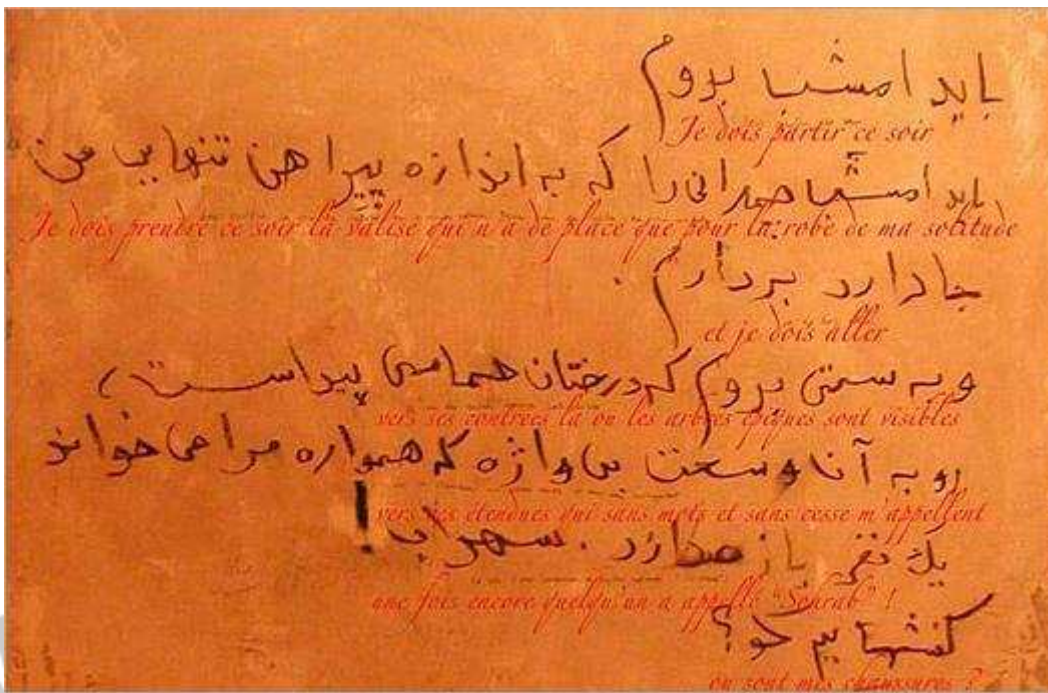 باید امشب بروم
Je dois partir ce soir
باید امشب چمدانی را که به اندازه پیراهن تنهایی من
Je dois prendre ce soir la valise qui n'a de place que pour la robe de ma solitude
جا دارد بردارم.
et je dois aller
و به سمتی بروم که درختان حماسی پیداست،
vers ses contrées là ou les arbres épiques sont visibles
رو به آن وسعت بی واژه که همواره مرا می خواند
vers ses étendues qui sans mots et sans cesse m'appellent
یک نفر باز صدا زد. سهراب!
une fois encore quelqu'un a appellé "Sohrab" !
کفشهایم کو؟
ou sont mes chaussures ?